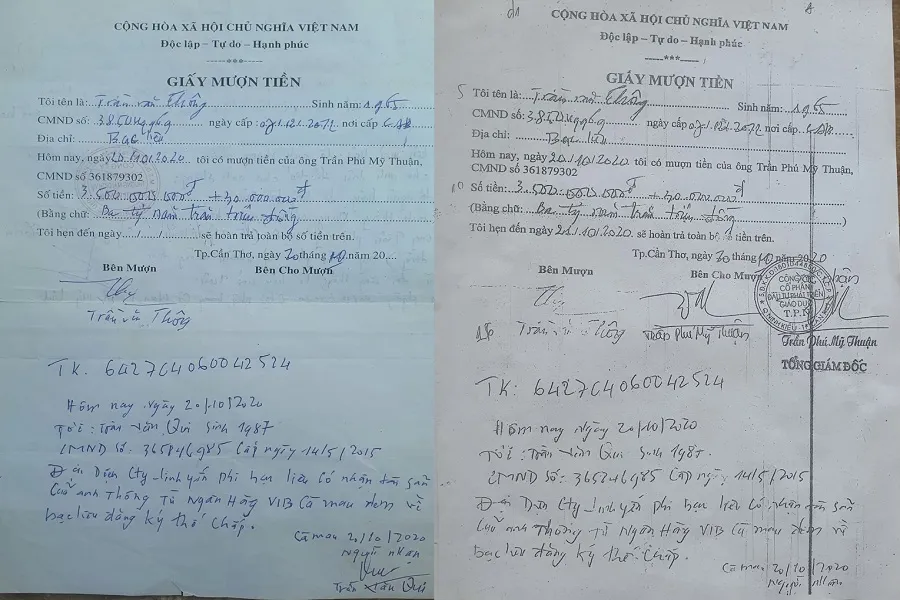 CỘNG HÒA XÃ HỘI CHỦ NGHĨA VIỆT NAM
Độc lập – Tự do – Hạnh phúc
-----***-----
GIẤY MƯỢN TIỀN
Tôi tên là: Trần văn Thông Sinh năm: 1965
CMND số: ngày cấp nơi cấp
Địa chỉ: Bạc liêu
Hôm nay, ngày 20/10/2020 tôi có mượn tiền của ông Trần Phú Mỹ Thuận,
CMND số 361879302
Số tiền: 3.500.000.000đ + 30.000.000đ
(Bằng chữ: Ba tỷ năm trăm triệu đồng
Tôi hẹn đến ngày...../...../........ sẽ hoàn trả toàn bộ số tiền trên.
Tp.Cần Thơ, ngày 20 tháng 10 năm 20....
Bên Mượn Bên Cho Mượn
Trần văn Thông
TK: 642704060042524
Hôm nay ngày 20/10/2020
Tôi: Trần Văn Qui Sinh 1987
CMND Số: 365846985 Cấp ngày 14/5/2015
Đại Diện Cty có nhận tài sản
Của anh Thông Từ Ngân Hàng VIB Cà mau đem về
bạc liêu đăng ký thế chấp.
Cà mau 20/10/2020
Người nhận
Trần Văn Qui
CỘNG HÒA XÃ HỘI CHỦ NGHĨA VIỆT NAM
Độc lập – Tự do – Hạnh phúc
-----***-----
GIẤY MƯỢN TIỀN
5 Tôi tên là: Trần văn Thông Sinh năm: 1965
CMND số: ngày cấp nơi cấp
Địa chỉ: Bạc liêu
Hôm nay, ngày 20/10/2020 tôi có mượn tiền của ông Trần Phú Mỹ Thuận,
CMND số 361879302
10 Số tiền: 3.500.000.000đ + 30.000.000đ
(Bằng chữ: Ba tỷ năm trăm triệu đồng )
Tôi hẹn đến ngày 21/10/2020 sẽ hoàn trả toàn bộ số tiền trên.
Tp.Cần Thơ, ngày 20 tháng 10 năm 2020
Bên Mượn Bên Cho Mượn
CÔNG TY
CỔ PHẦN
ĐẦU TƯ PHÁT TRIỂN
GIÁO DỤC
T.P.N
15 Trần văn Thông Trần Phú Mỹ Thuận
Trần Phú Mỹ Thuận
TỔNG GIÁM ĐỐC
TK: 642704060042524
Hôm nay Ngày 20/10/2020
Tôi: Trần Văn Qui Sinh 1987
CMND Số: 365846985 Cấp ngày 14/5/2015
Đại Diện Cty có nhận tài sản
Của anh Thông Từ Ngân Hàng VIB Cà mau đem về
bạc liêu đăng ký thế chấp.
Cà mau 20/10/2020
Người nhận